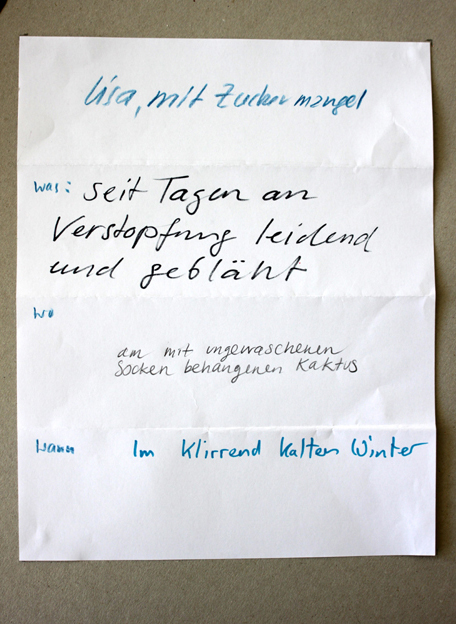 Lisa, mit Zuckermangel
was: seit Tagen an
Verstopfung leidend
und gebläht
wo
am mit ungewaschenen
Socken behangenen Kaktus
wann Im Klirrend kalten Winter